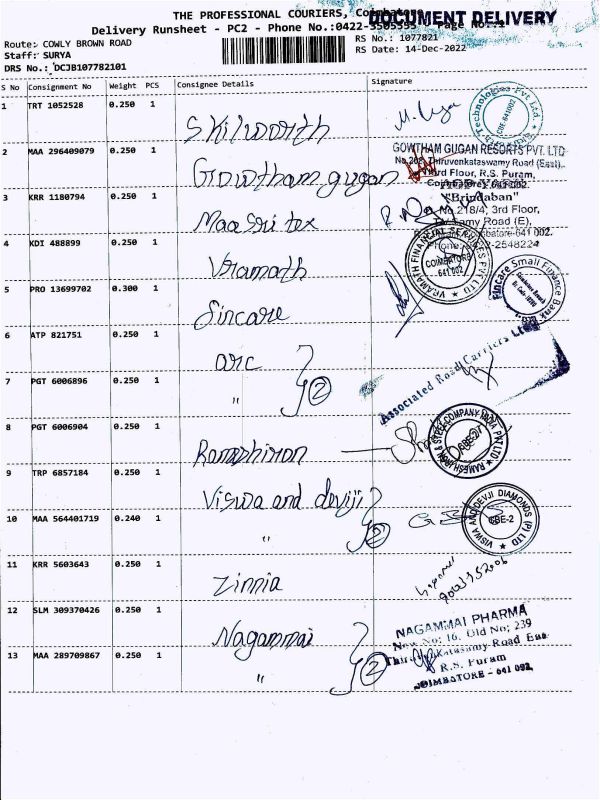 THE PROFESSIONAL COURIERS, Coimbatore
DOCUMENT DELIVERY
Delivery Runsheet - PC2 - Phone No.:0422-3505555 Page No.:1
Route: COWLY BROWN ROAD
RS No.: 1077821
Staff: SURYA
RS Date: 14-Dec-2022
DRS No.: DCJB107782101
S No Consignment No Weight PCS Consignee Details Signature
1 TRT 1052528 0.250 1 Skilworth
Technologies Pvt Ltd.
CBE-641002
2 MAA 296409079 0.250 1 Gowtham gugan
GOWTHAM GUGAN RESORTS PVT. LTD
No.202, Thiruvenkataswamy Road (East),
Third Floor, R.S. Puram,
Coimbatore-641 002.
3 KRR 1180794 0.250 1 Maa Sri tex
"Brindaban"
No.218/4, 3rd Floor,
Samy Road (E),
Coimbatore-641 002.
Phone: 0422-2548224
4 KDI 488899 0.250 1 Vramath
VRAMATH FINANCIAL SERVICES PVT LTD
COIMBATORE
641 002
5 PRO 13699702 0.300 1 Sincare
Fincare Small Finance Bank
6 ATP 821751 0.250 1 arc
7 PGT 6006896 0.250 1 " 2
Associated Road Carriers Ltd
8 PGT 6006904 0.250 1 Rameshiron
RAMESH IRON & STEEL COMPANY INDIA PVT LTD
CBE-2
9 TRP 6857184 0.250 1 Viswa and deviji
10 MAA 564401719 0.240 1 " 2
VISWA AND DEVJI DIAMONDS (P) LTD
CBE-2
11 KRR 5603643 0.250 1 Zinnia
12 SLM 309370426 0.250 1 Nagammai
13 MAA 289709867 0.250 1 " 2
NAGAMMAI PHARMA
New No: 16, Old No; 239
Thiruvenkatasamy Road East
R.S. Puram
COIMBATORE - 641 002.